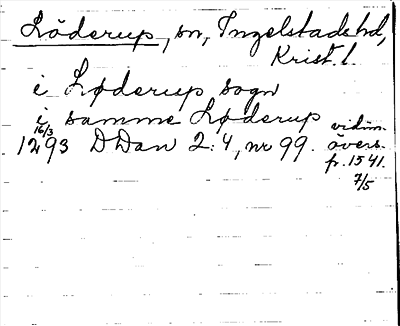 Löderup, sn, Ingelstads hd,
Krist. l.
i Løderup sogn
i samme Løderup
16/3
1293 DDan 2:4, nr 99. vidim.
övers.
fr. 1541.
7/5